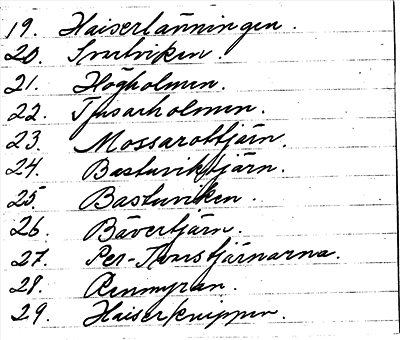 19. Haiserlänningen.
20. Inrlviken.
21. Högholmen.
22. Tjusarholmen.
23. Mossarottjärn.
24. Bastuviktjärn.
25. Bastuviken.
26. Bävertjärn.
27. Per-Tomstjärnarna.
28. Renmyran.
29. Haiserknippen.